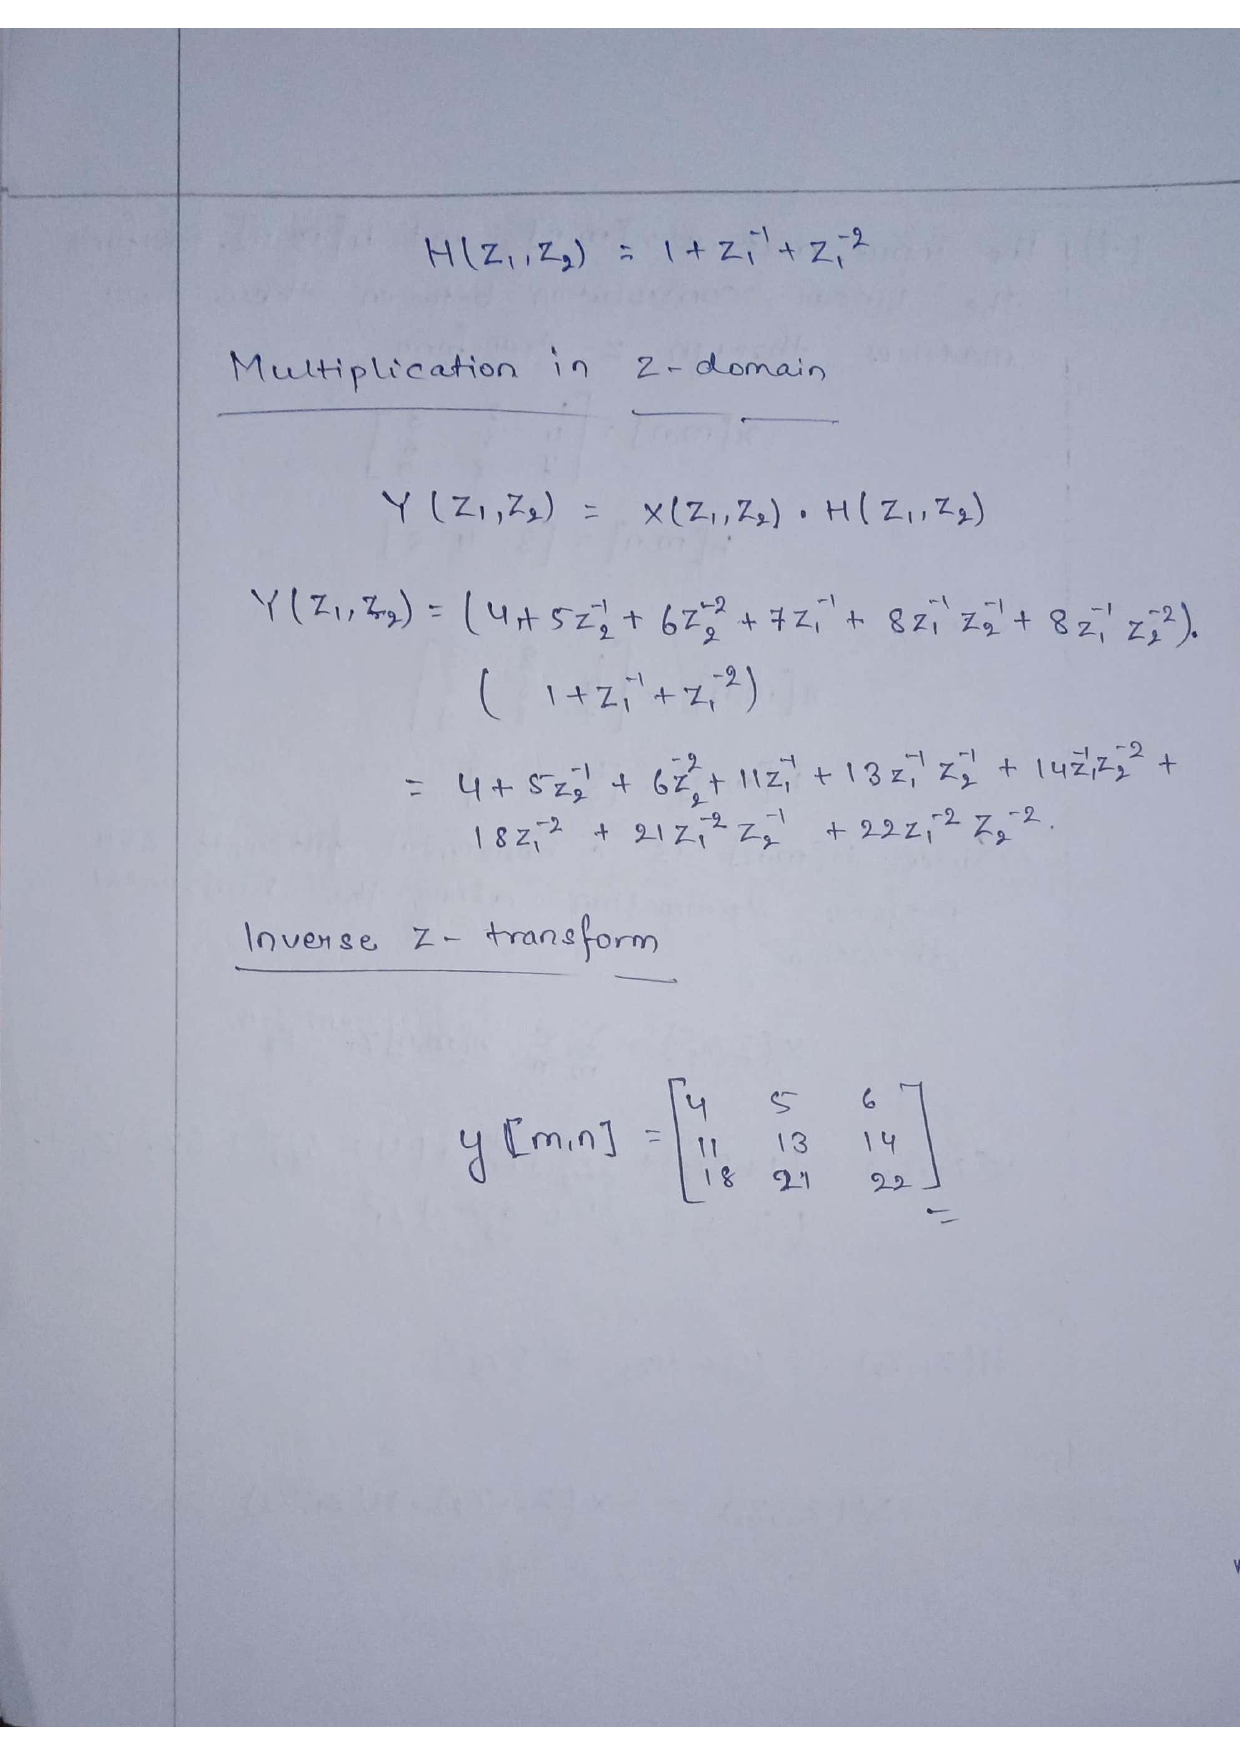 H(Z₁,Z₂) = 1 + Z₁⁻¹ + Z₁⁻²
Multiplication in z-domain
Y(Z₁,Z₂) = X(Z₁,Z₂) . H(Z₁,Z₂)
Y(Z₁,Z₂) = (4 + 5Z₂⁻¹ + 6Z₂⁻² + 7Z₁⁻¹ + 8Z₁⁻¹ Z₂⁻¹ + 8Z₁⁻¹ Z₂⁻²).
( 1 + Z₁⁻¹ + Z₁⁻²)
= 4 + 5Z₂⁻¹ + 6Z₂⁻² + 11Z₁⁻¹ + 13Z₁⁻¹ Z₂⁻¹ + 14Z₁⁻¹Z₂⁻² +
18Z₁⁻² + 21Z₁⁻² Z₂⁻¹ + 22Z₁⁻² Z₂⁻².
Inverse z-transform
4 5 6
y[m,n] = 11 13 14
18 21 22